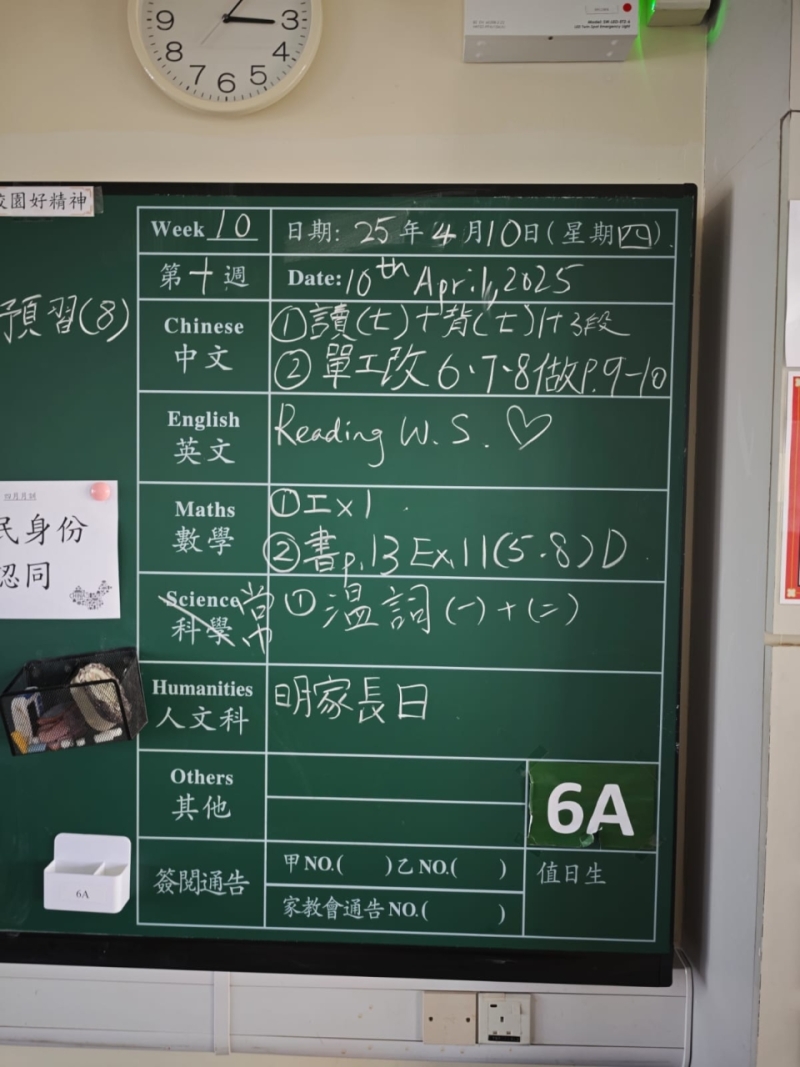 9
3
8
4
7
6
5
校園好精神
Week 10
日期: 25年4月10日(星期四).
第十週
Date: 10th April, 2025
預習(8)
Chinese
中文
①讀(七)+背(七)1+3段
②單工改6、7、8做P.9-10
English
英文
Reading W.S. ♡
Maths
數學
①工x1
②書p.13 Ex.11(5-8)D
民身份
認同
Science
科學
常
①溫詞(一)+(二)
Humanities
人文科
明家長日
Others
其他
6A
簽閱通告
甲NO.( )乙NO.( )
家教會通告NO.( )
值日生
6A